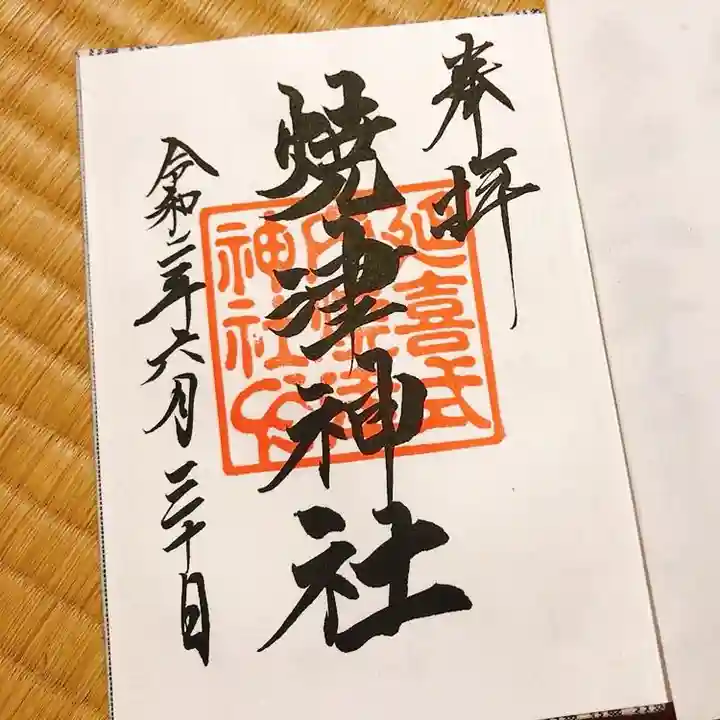 奉拝
焼津神社
令和二年六月三十日
延喜式
神社